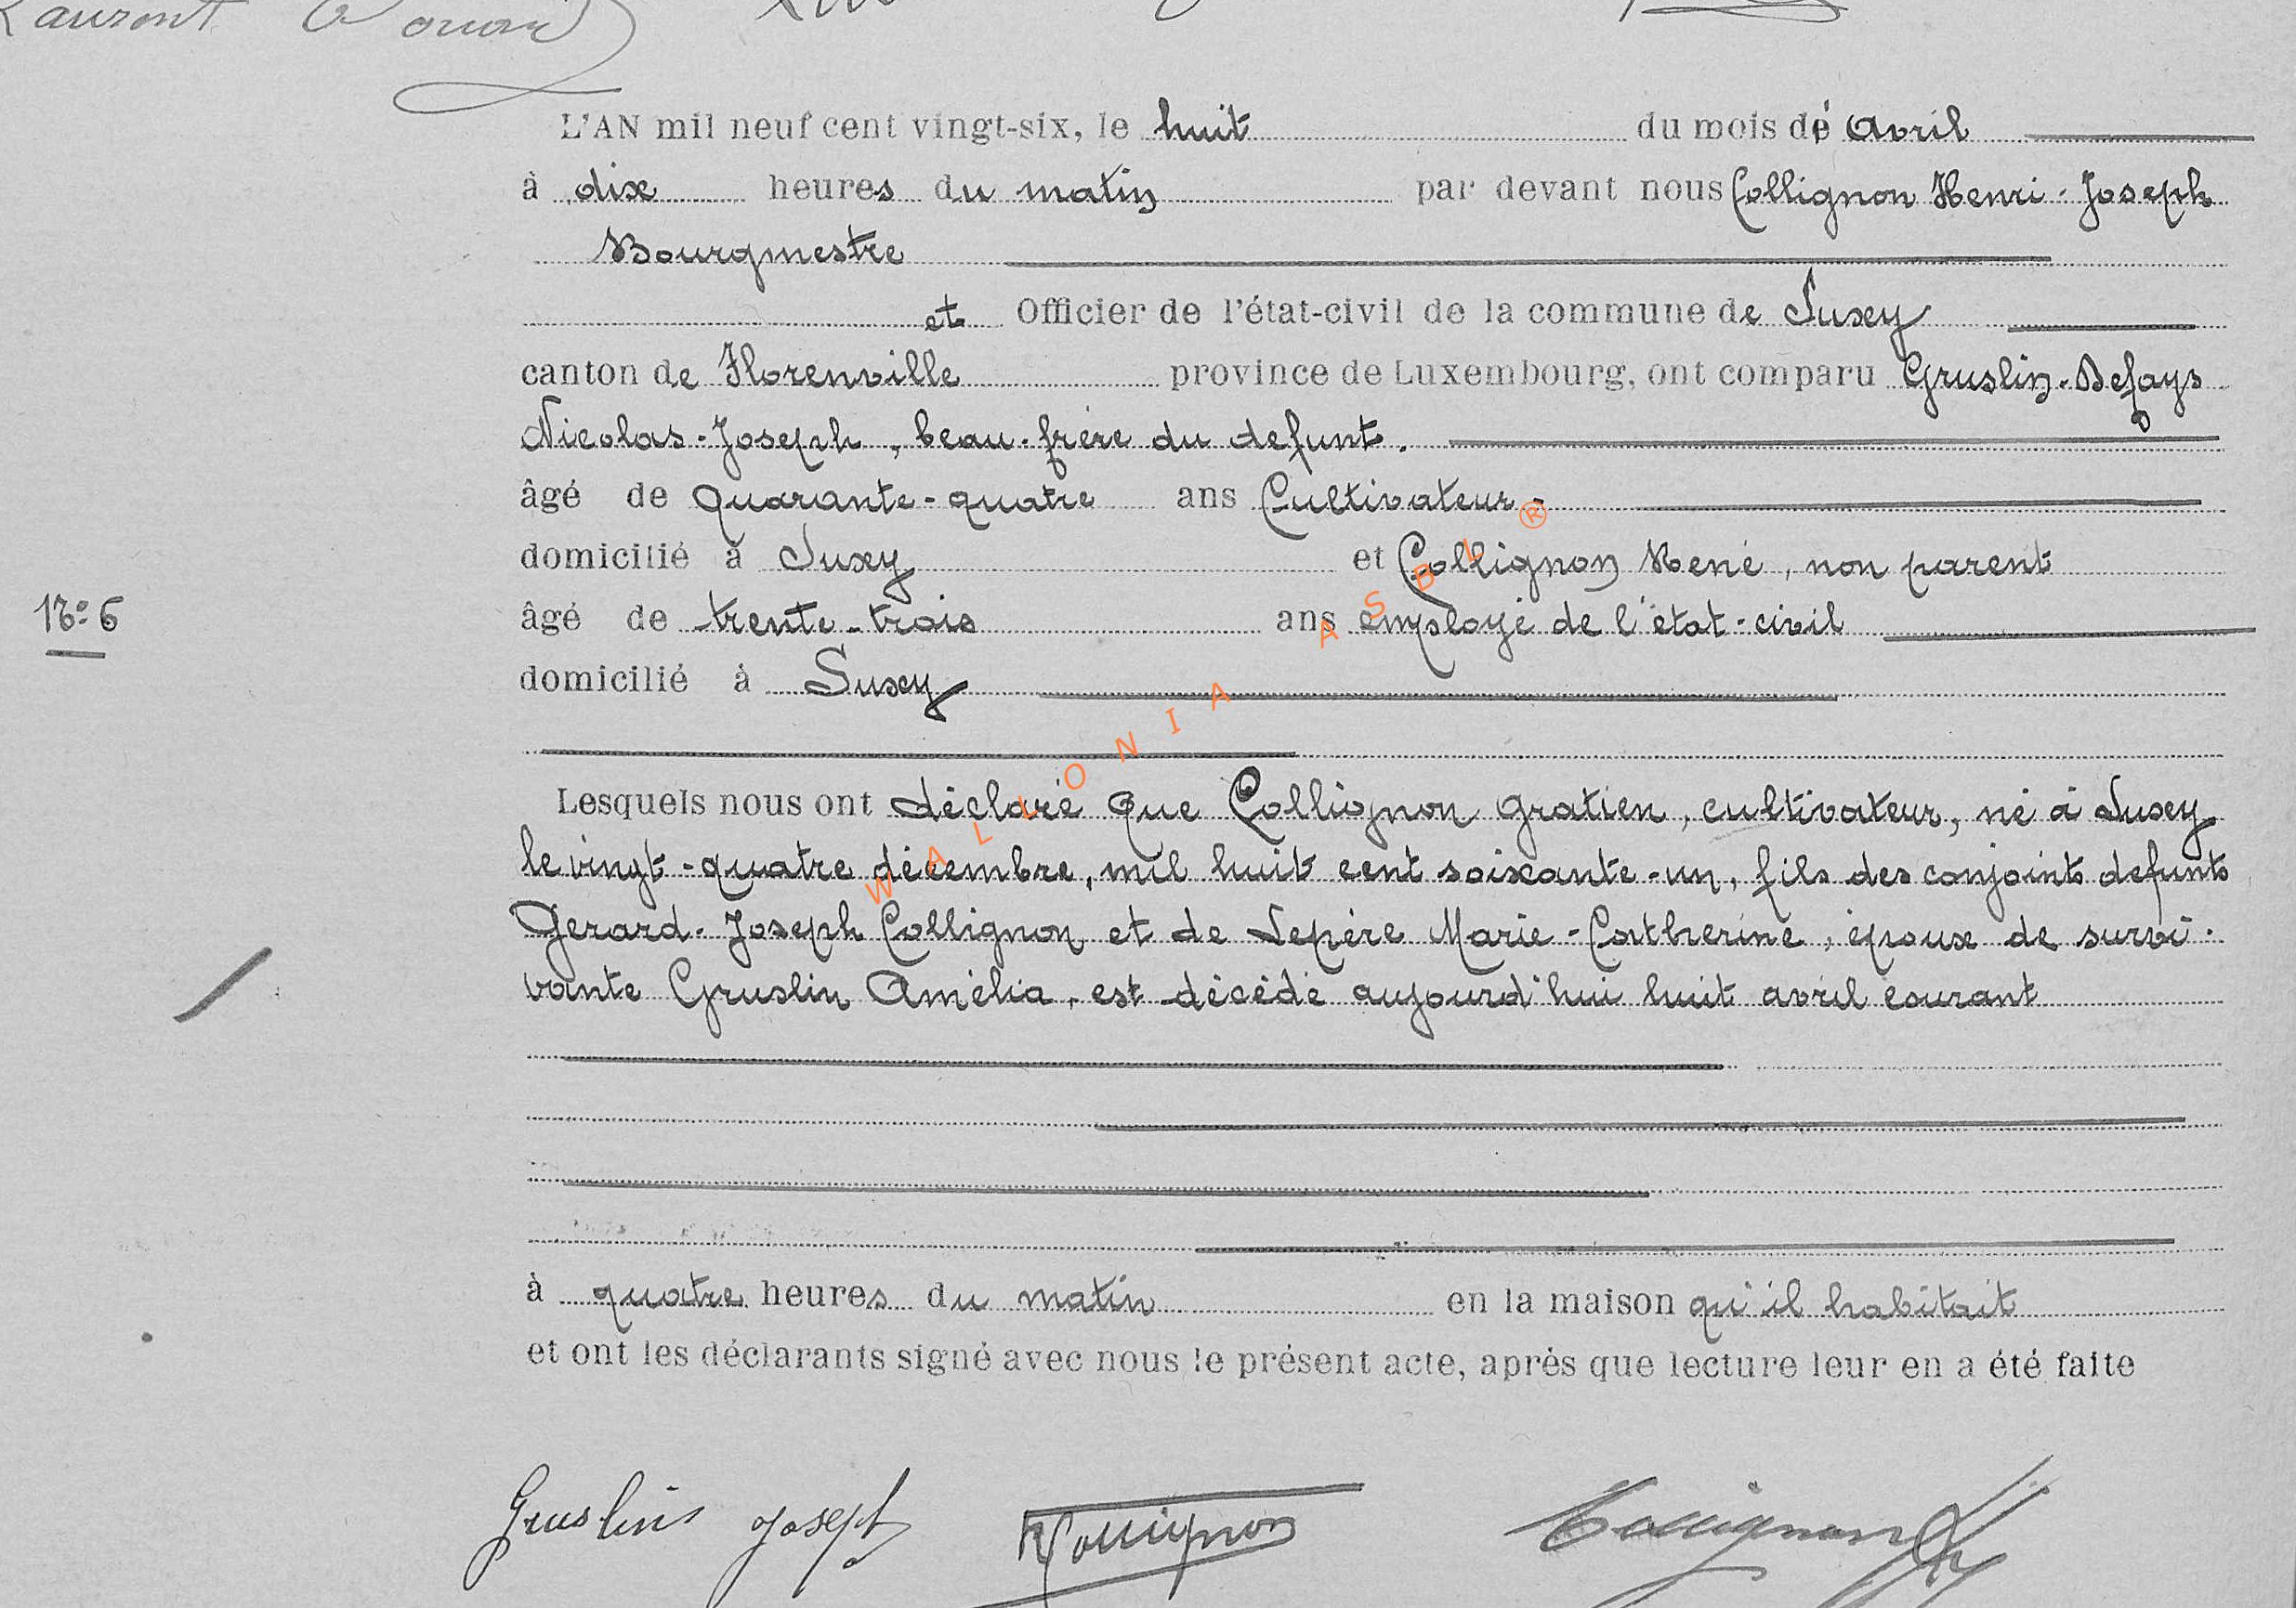 Laurent
L'AN mil neuf cent vingt-six, le huit du mois dé Avril
à dix heures du matin par devant nous Collignon Henri-Joseph
Bourgmestre
et Officier de l'état-civil de la commune de Suxey
canton de Florenville province de Luxembourg, ont comparu Gruslin-Defays
Nicolas-Joseph, beau-frère du defunt.
âgé de quarante-quatre ans Cultivateur-
domicilié à Suxey et Collignon René, non parent
N° 6
âgé de trente-trois ans employé de l'état-civil
domicilié à Suxey
Lesquels nous ont déclaré que Collignon Gratien, cultivateur, né à Suxey
le vingt-quatre décembre, mil huit cent soixante-un, fils des conjoints defunts
Gerard-Joseph Collignon et de Lepère Marie-Catherine, époux de survi-
vante Gruslin Amélia, est décédé aujourd'hui huit avril courant
à quatre heures du matin en la maison qu'il habitait
et ont les déclarants signé avec nous le présent acte, après que lecture leur en a été faite
Gruslin Joseph RCollignon Collignon
WALLONIA ASBL ®